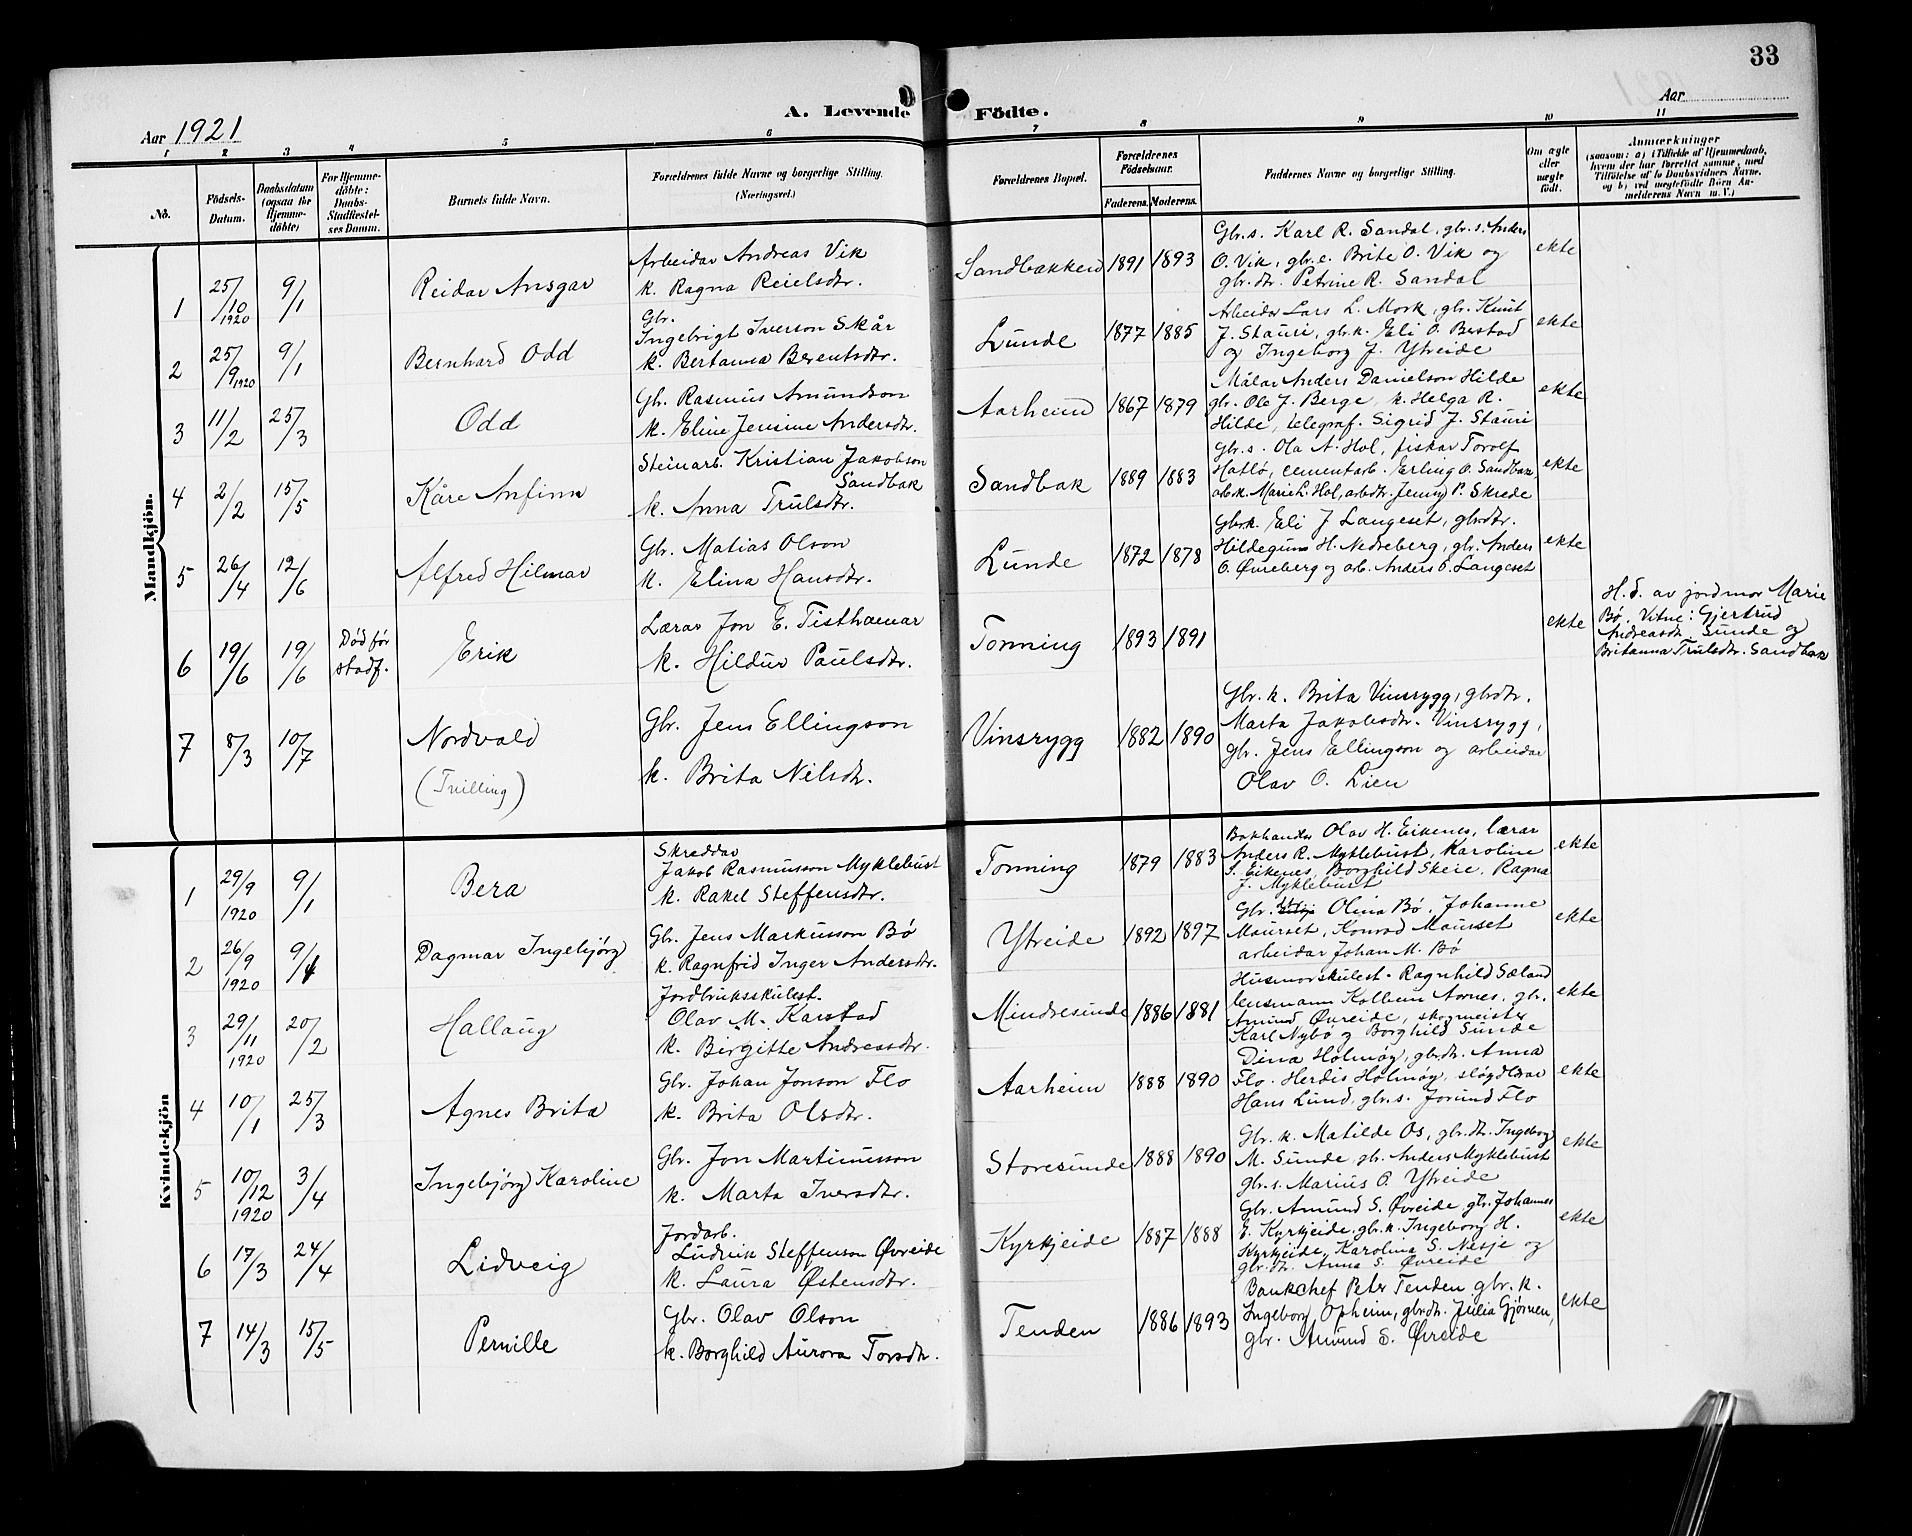 33
Aar 1921
A. Levende Födte.
Aar
1 2 3 4 5 6 7 8 9 10 11
No.
Födsels-Datum.
Daabsdatum (ogsaa for Hjemmedöbte)
For Hjemmedöbte: Daabs-Stadfæstelses Datum.
Barnets fulde Navn.
Forældrenes fulde Navne og borgerlige Stilling.
(Næringsvei.)
Forældrenes Bopæl.
Forældrenes Födselsaar.
Faderens. Moderens.
Faddernes Navne og borgerlige Stilling.
Om ægte eller uægte födt.
Anmærkninger
(saasom: a) i Tilfælde af Hjemmedaab,
hvem der har forrettet samme, med
Tilföielse af to Daabsvidners Navne,
og b) ved uægtefödte Börn Anmelderens Navn m. V.)
Mandkjön.
1 25/10 1920 9/1 Reidar Ansgar
Arbeidar Andreas Vik
k. Ragna Reielsdtr.
Sandbakken 1891 1893
Gbr.s. Karl R. Sandal, gbr.s. Anders
O. Vik, gbr.e. Brite O. Vik og
gbr.dtr. Petrine R. Sandal
ekte
2 25/9 1920 9/1 Bernhard Odd
Gbr.
Ingebrigt Iverson Skår
k. Bertama Berentsdtr.
Lunde 1877 1885
Arbeidar Lars L. Mork, gbr. Knut
J. Stauri, gbr.k. Eli O. Berstad
og Ingeborg J. Ytreide
ekte
3 11/2 25/3 Odd
Gbr. Rasmus Amundson
k. Eline Jensine Andersdtr.
Aarheim 1867 1879
Målar Anders Danielson Hilde
gbr. Ole J. Berge, k. Helga R.
Hilde, telegraf. Sigrid J. Stauri
ekte
4 2/2 15/5 Kåre Anfinn
Steinarb. Kristian Jakobson
Sandbak
k. Anna Trulsdtr.
Sandbak 1889 1883
Gbr.s. Ola A. Hol, fiskar Torolf
Hatlø, cementarb. Erling O. Sandbak
arb.k. Marie L. Hol, arb.dtr. Jenny P. Skrede
ekte
5 26/4 12/6 Alfred Hilmar
Gbr. Matias Olson
k. Elina Hansdtr.
Lunde 1872 1878
Gbr.k. Eli J Langeset, gbr.dtr.
Hildegunn H. Nedreberg, gbr. Anders
O. Øvreberg og arb. Anders O. Langeset
ekte
6 19/6 19/6 Død før stadf. Erik
Lærar Jon E. Tisthamar
k. Hildur Paulsdtr.
Tonning 1893 1891
ekte
H.d. av jordmor Marie
Bø. Vitne: Gjertrud
Andreasdtr. Sunde og
Britanna Trulsdtr. Sandbak
7 8/3 10/7 Nordvald
(Tvilling)
Gbr. Jens Ellingson
k. Brita Nilsdtr.
Vinsrygg 1882 1890
Gbr. k. Brita Vinsrygg, gbr.dtr.
Marta Jakobsdtr. Vinsrygg,
gbr. Jens Ellingson og arbeidar
Olav O. Lien
Kvindekjön
1 29/9 1920 9/1 Bera
Skreddar
Jakob Rasmusson Myklebust
k. Rakel Steffensdtr.
Tonning 1879 1883
Bokhandlar Olav H. Eikenes, lærar
Anders R. Myklebust, Karoline
S. Eikenes, Borghild Skeie, Ragna
J. Myklebust
ekte
2 26/9 1920 9/1 Dagmar Ingebjørg
Gbr. Jens Markusson Bø
k. Ragnfrid Inger Andersdtr.
Ytreide 1892 1897
Gbr. Olina Bø, Johanne
Maurset, Konrad Maurset
arbeidar Johan M. Bø
ekte
3 29/11 1920 20/2 Hallaug
Jordbruksskulest.
Olav M. Karstad
k. Birgitte Andreasdtr.
Mindresunde 1886 1881
Husmorskulest. Ragnhild Sæland
lensmann Kolbein Aarnes, gbr.
Amund Øvreide, skogmeister
Karl Nybø og Borghild Sunde
ekte
4 10/1 25/3 Agnes Brita
Gbr. Johan Jonson Flo
k. Brita Olsdtr.
Aarheim 1888 1890
Dina Holmøy, gbr.dtr. Anna
Flo. Herdis Holmøy, sløydlærar
Hans Lund, gbr.s. Jorund Flo
ekte
5 10/12 1920 3/4 Ingebjørg Karoline
Gbr. Jon Martinusson
k. Marta Iversdtr.
Storesunde 1888 1890
Gbr. k. Matilde Os, gbr.dtr. Ingeborg
M. Sunde, gbr. Anders Myklebust
gbr.s. Marius O. Ytreide
ekte
6 17/3 24/4 Lidveig
Jordarb.
Ludvik Steffenson Øvreide
k. Laura Østensdtr.
Kyrkjeide 1887 1888
Gbr. Amund S. Øvreide, gbr. Johannes
E. Kyrkjeide, gbr.k. Ingeborg H.
Kyrkjeide, Karolina S. Nesje og
gbr.dtr. Anna S. Øvreide
ekte
7 14/3 15/5 Pernille
Gbr. Olav Olson
k. Borghild Aurora Torsdtr.
Tenden 1886 1893
Bankchef Peter Tenden gbr.k.
Ingeborg Opheim, gbr.dtr. Julia Gjørven,
gbr. Amund S. Øvreide
ekte